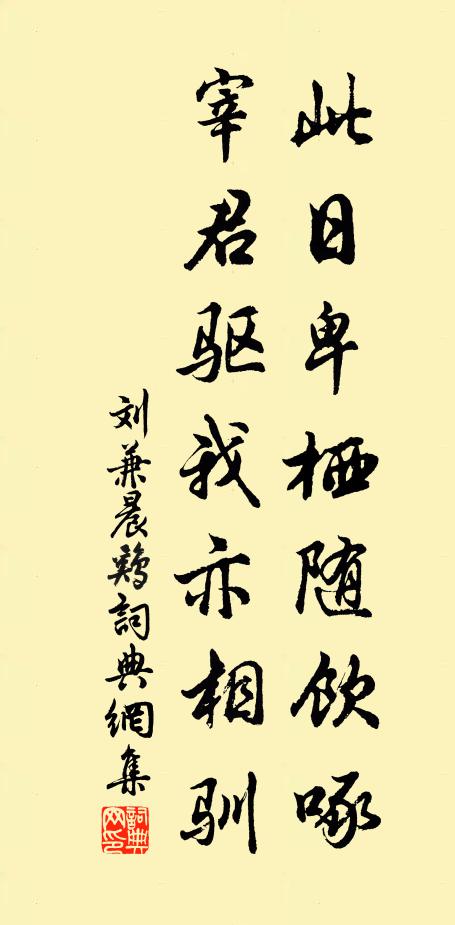 此日卑栖随饮啄
宰君驱我亦相驯
刘兼晨鷄詞典網集
詞典网印